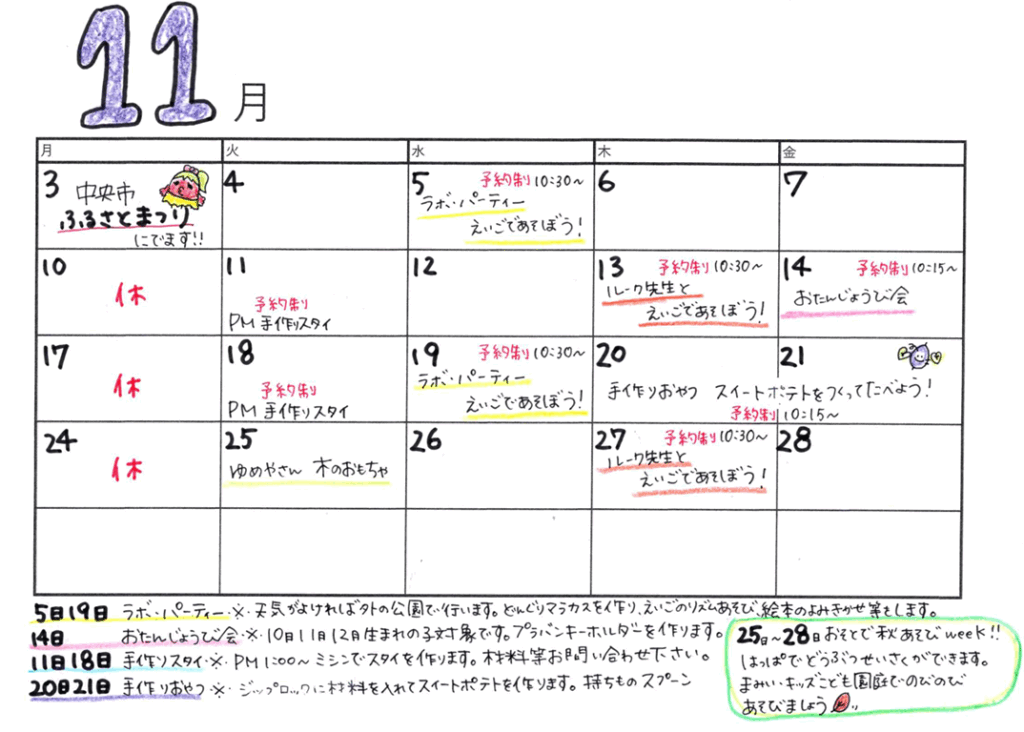 11月
月 火 水 木 金
3 中央市
ふるさとまつり
にでます!!
4
5 予約制 10:30~
ラボ・パーティー
えいごであそぼう!
6
7
10
休
11
予約制
PM 手作りスタイ
12
13 予約制 10:30~
ルーク先生と
えいごであそぼう!
14 予約制 10:15~
おたんじょうび会
17
休
18
予約制
PM 手作りスタイ
19 予約制 10:30~
ラボ・パーティー
えいごであそぼう!
20 21
手作りおやつ スイートポテトをつくってたべよう!
予約制 10:15~
24
休
25
ゆめやさん 木のおもちゃ
26
27 予約制 10:30~
ルーク先生と
えいごであそぼう!
28
5日19日 ラボ・パーティー・※・天気がよければ外の公園で行います。どんぐりマラカスを作り、えいごのリズムあそび、絵本のよみきかせ等をします。
14日 おたんじょうび会・※・10月11月12月生まれの子対象です。プラバンキーホルダーを作ります。
11日18日 手作りスタイ・※・PM1:00~ミシンでスタイを作ります。材料等お問い合わせ下さい。
20日21日 手作りおやつ・※・ジップロックに材料を入れてスイートポテトを作ります。持ちもの スプーン
25日~28日おそとで秋あそびweek!!
はっぱでどうぶつせいさくができます。
まみい・キッズこども園庭でのびのび
あそびましょう